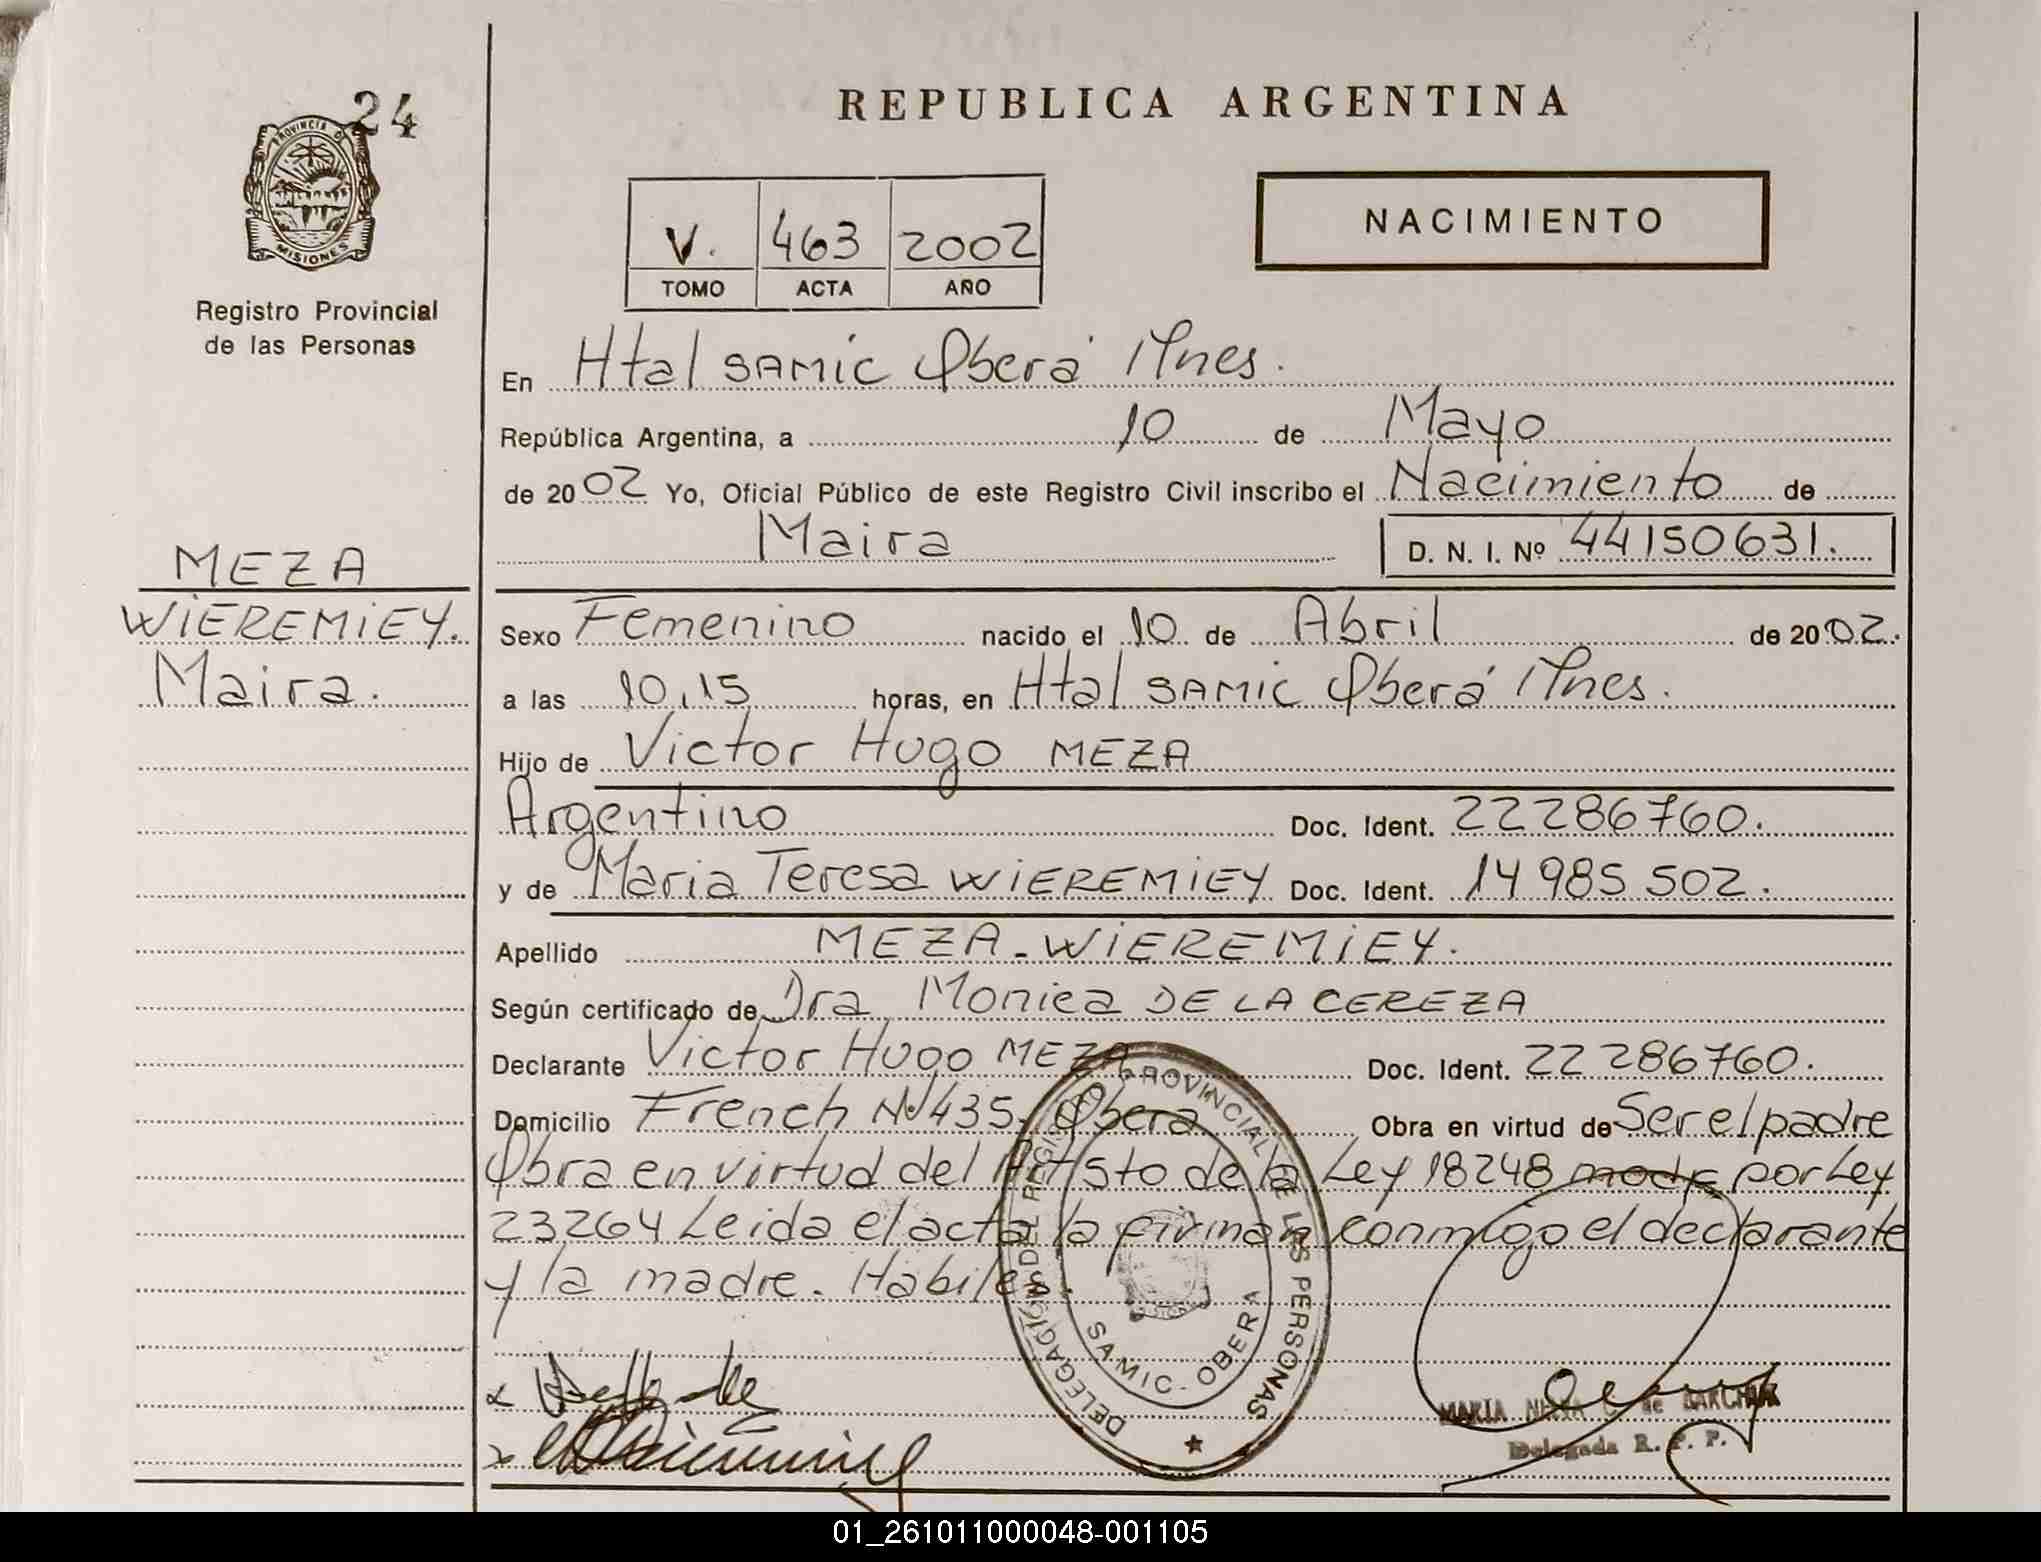 24
REPUBLICA ARGENTINA
PROVINCIA DE
MISIONES
Registro Provincial
de las Personas
NACIMIENTO
V. 463 2002
TOMO ACTA AÑO
En Htal SAMIC Oberá Mnes.
República Argentina, a 10 de Mayo
de 2002 Yo, Oficial Público de este Registro Civil inscribo el Nacimiento de
Maira D. N. I. Nº 44150631.
MEZA
WIEREMIEY.
Maira.
Sexo Femenino nacido el 10 de Abril de 2002.
a las 10,15 horas, en Htal SAMIC Oberá Mnes.
Hijo de Victor Hugo MEZA
Argentino Doc. Ident. 22286760.
y de Maria Teresa WIEREMIEY Doc. Ident. 14985502.
Apellido MEZA-WIEREMIEY.
Según certificado de Dra Monica DE LA CEREZA
Declarante Victor Hugo MEZA Doc. Ident. 22286760.
Domicilio French Nº 435. Obera Obra en virtud de Ser el padre
Obra en virtud del Art 5to de la Ley 18248 modf por Ley
23264 Leida el acta la firman conmigo el declarante
y la madre. Habiles.
DELEGACIÓN DEL REGISTRO PROVINCIAL DE LAS PERSONAS
SAMIC - OBERA
MARIA
Delegada R. P. P.
01_261011000048-001105